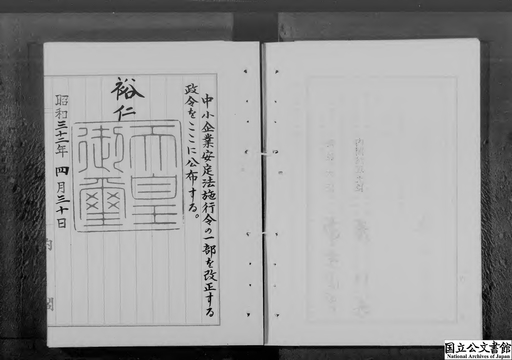 中小企業安定法施行令の一部を改正する
政令をここに公布する。
裕仁
天皇
御璽
昭和三十二年四月三十日
内閣
国立公文書館
National Archives of Japan